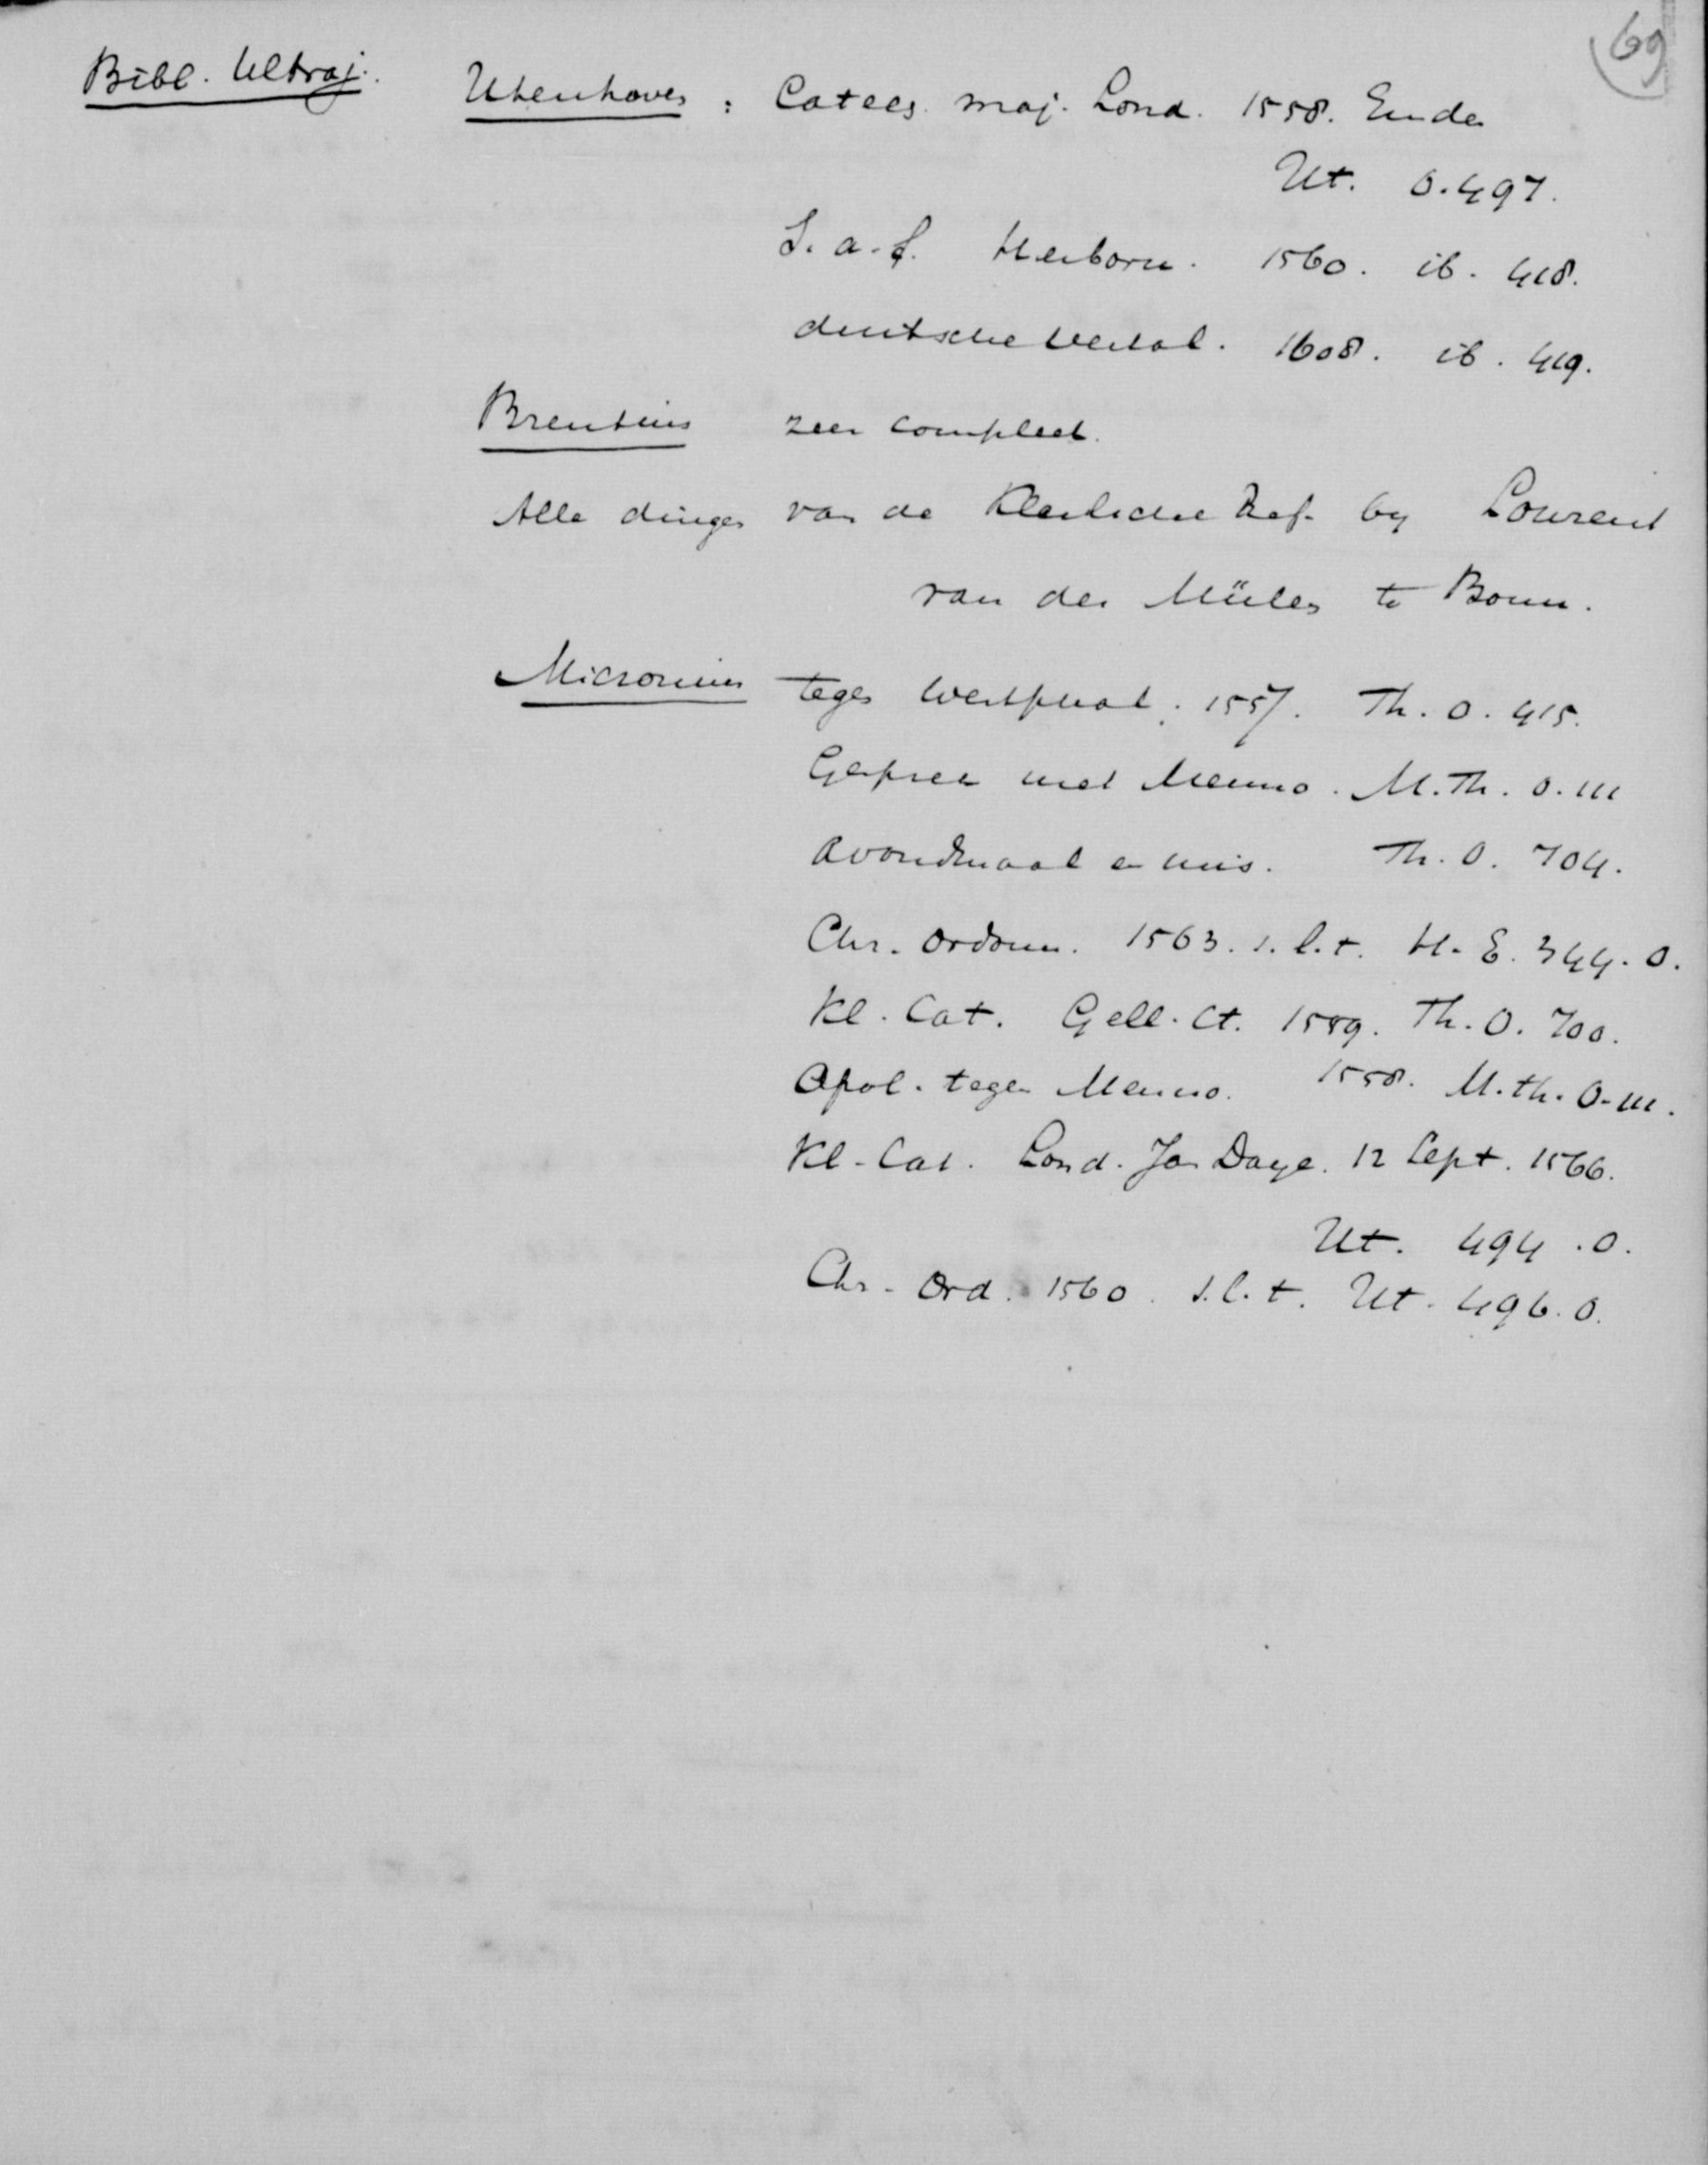 69
Bibl. Ultraj.
Utenhoves : Catecs. maj. Lond. 1558. Emden
Ut. O. 497.
S. a. f. Herborn. 1560. ib. 418.
deutsche vertal. 1608. ib. 419.
Brentius zeer compleet.
Alle dingen van de Keulsche Ref. by Laurent
van der Mülen te Bonn.
Micronius tegen Westphal. 1557. Th. O. 415.
Gesprek met Menno. M. Th. O. 111
Avondmaal en mis. Th. O. 704.
Chr. Ordonn. 1563. s. l. t. H. E. 344. O.
Kl. Cat. Gell. Ct. 1559. Th. O. 700.
Apol. tegen Menno. 1558. M. th. O. 111.
Kl. Cat. Lond. Jan Daye. 12 Sept. 1566.
Ut. 494. O.
Chr. Ord. 1560. s. l. t. Ut. 496. O.